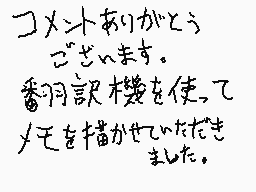 コメントありがとう
ございます。
翻訳機を使って
メモを描かせていただき
ました。